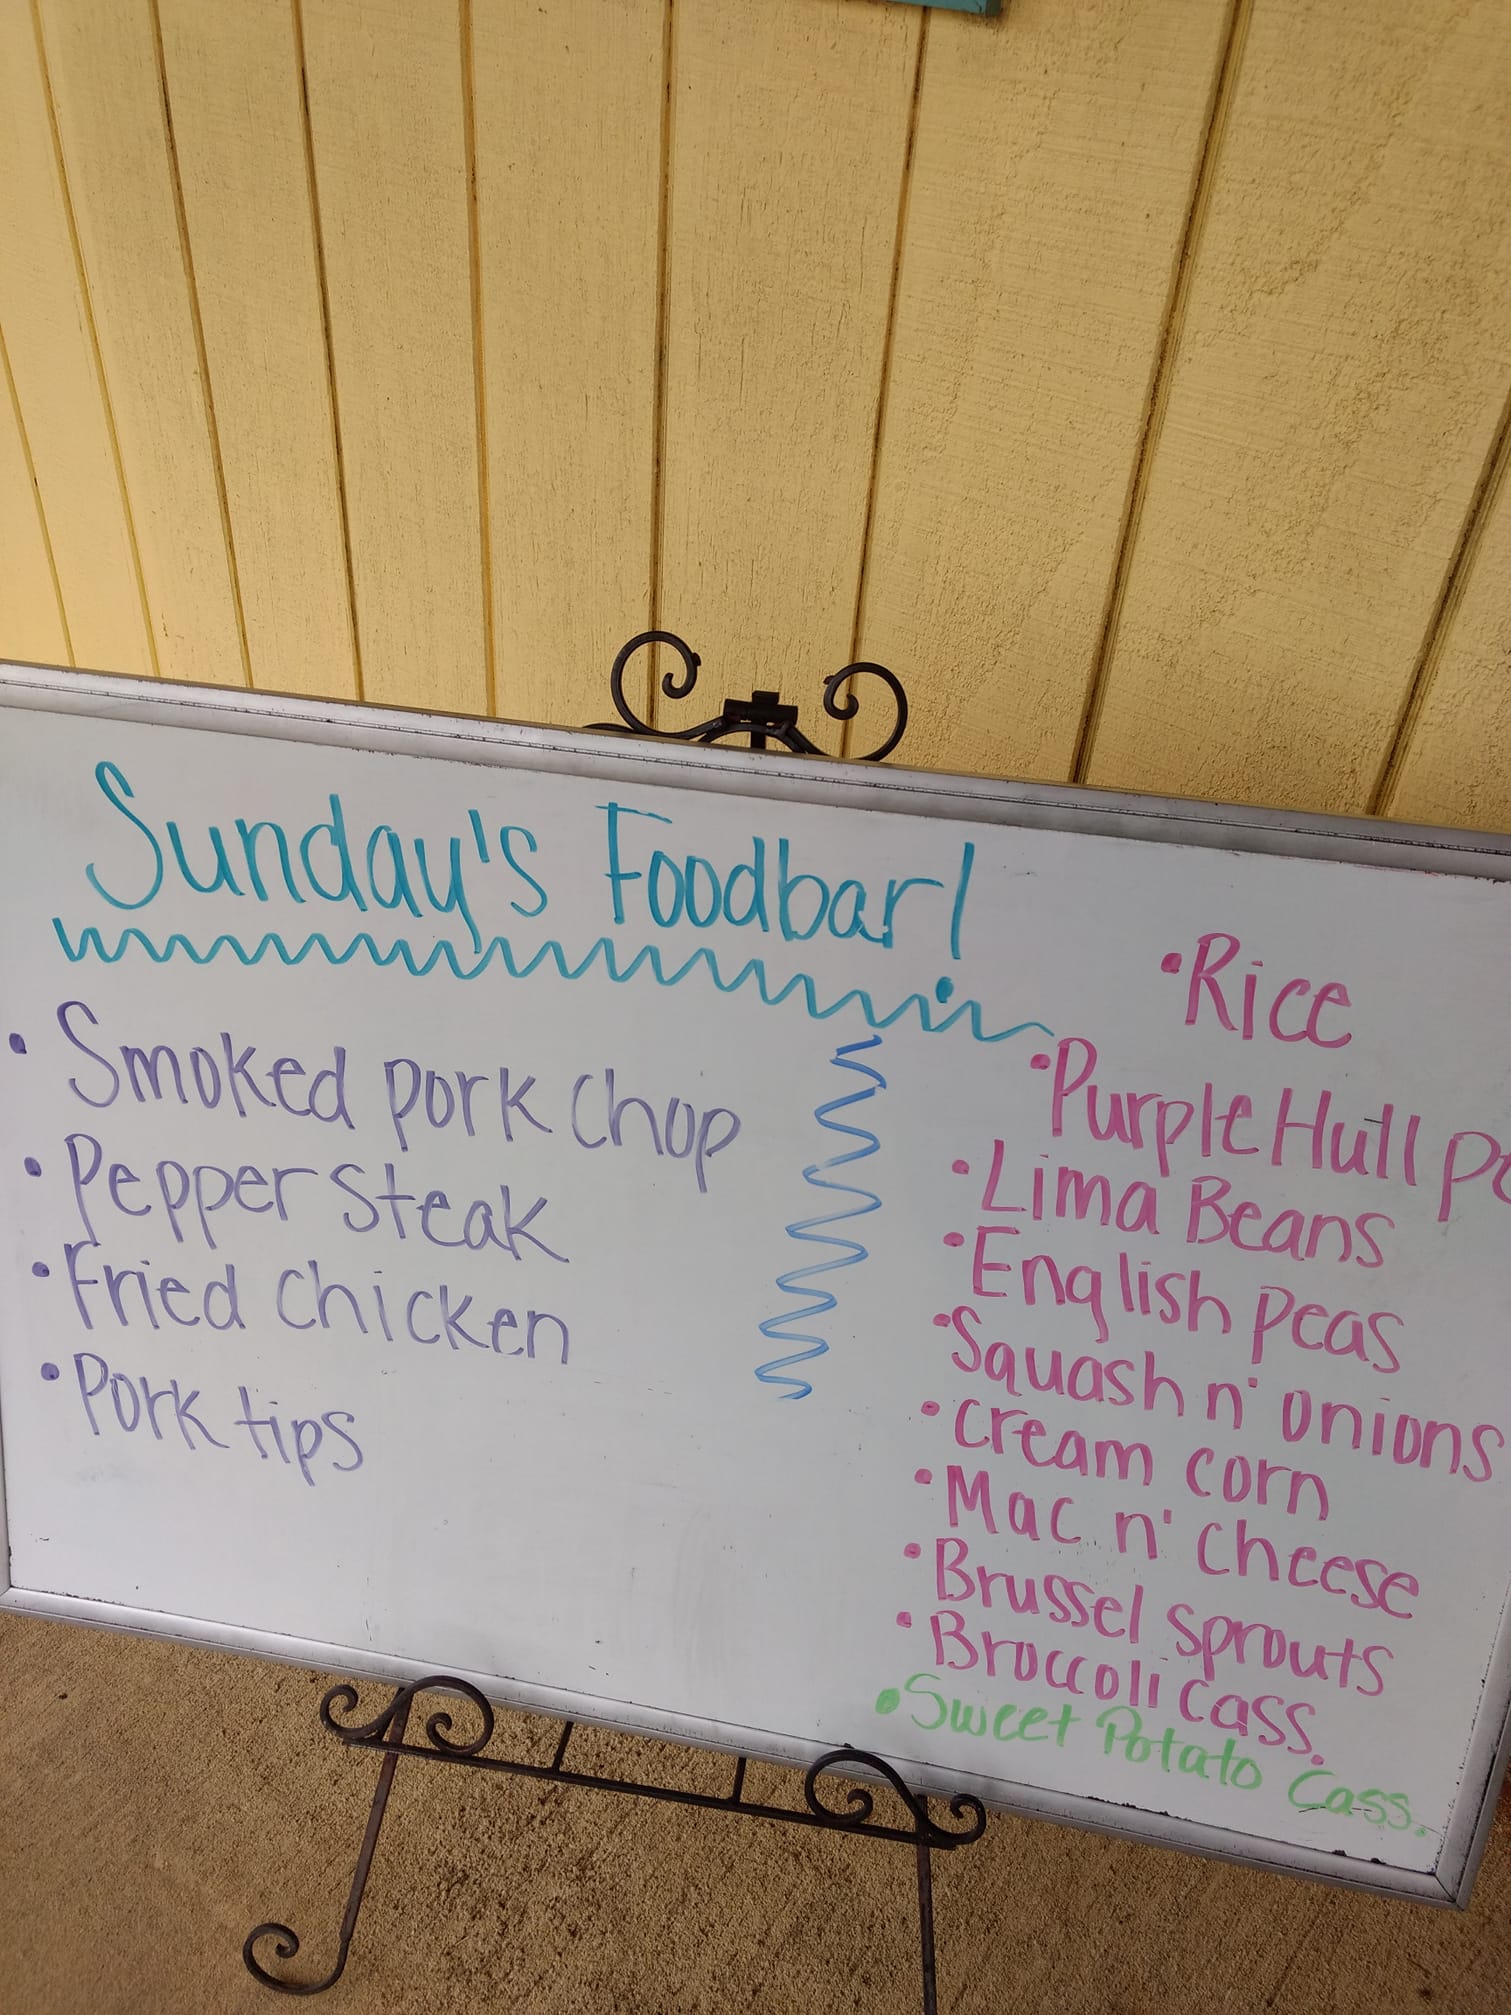 Sunday's Foodbar!
• Smoked pork chop
• Pepper steak
• Fried chicken
• Pork tips
• Rice
• Purple Hull
• Lima Beans
• English peas
• Squash n' onions
• cream corn
• Mac n' cheese
• Brussel sprouts
• Broccoli cass.
• Sweet Potato Cass.